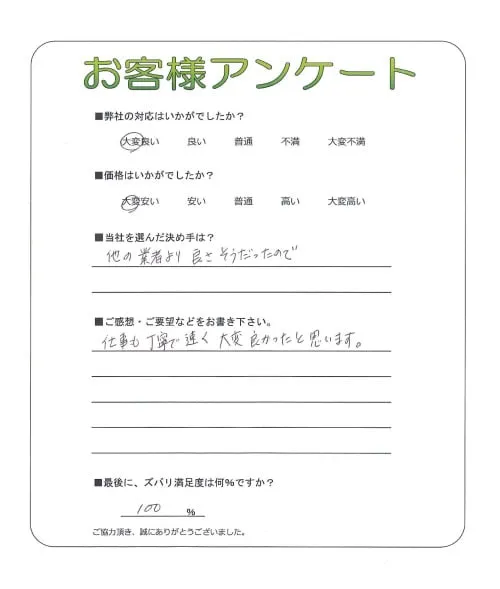 お客様アンケート
■弊社の対応はいかがでしたか？
大変良い 良い 普通 不満 大変不満
■価格はいかがでしたか？
大変安い 安い 普通 高い 大変高い
■当社を選んだ決め手は？
他の業者より良さそうだったので
■ご感想・ご要望などをお書き下さい。
仕事も丁寧で速く大変良かったと思います。
■最後に、ズバリ満足度は何%ですか？
100 %
ご協力頂き、誠にありがとうございました。